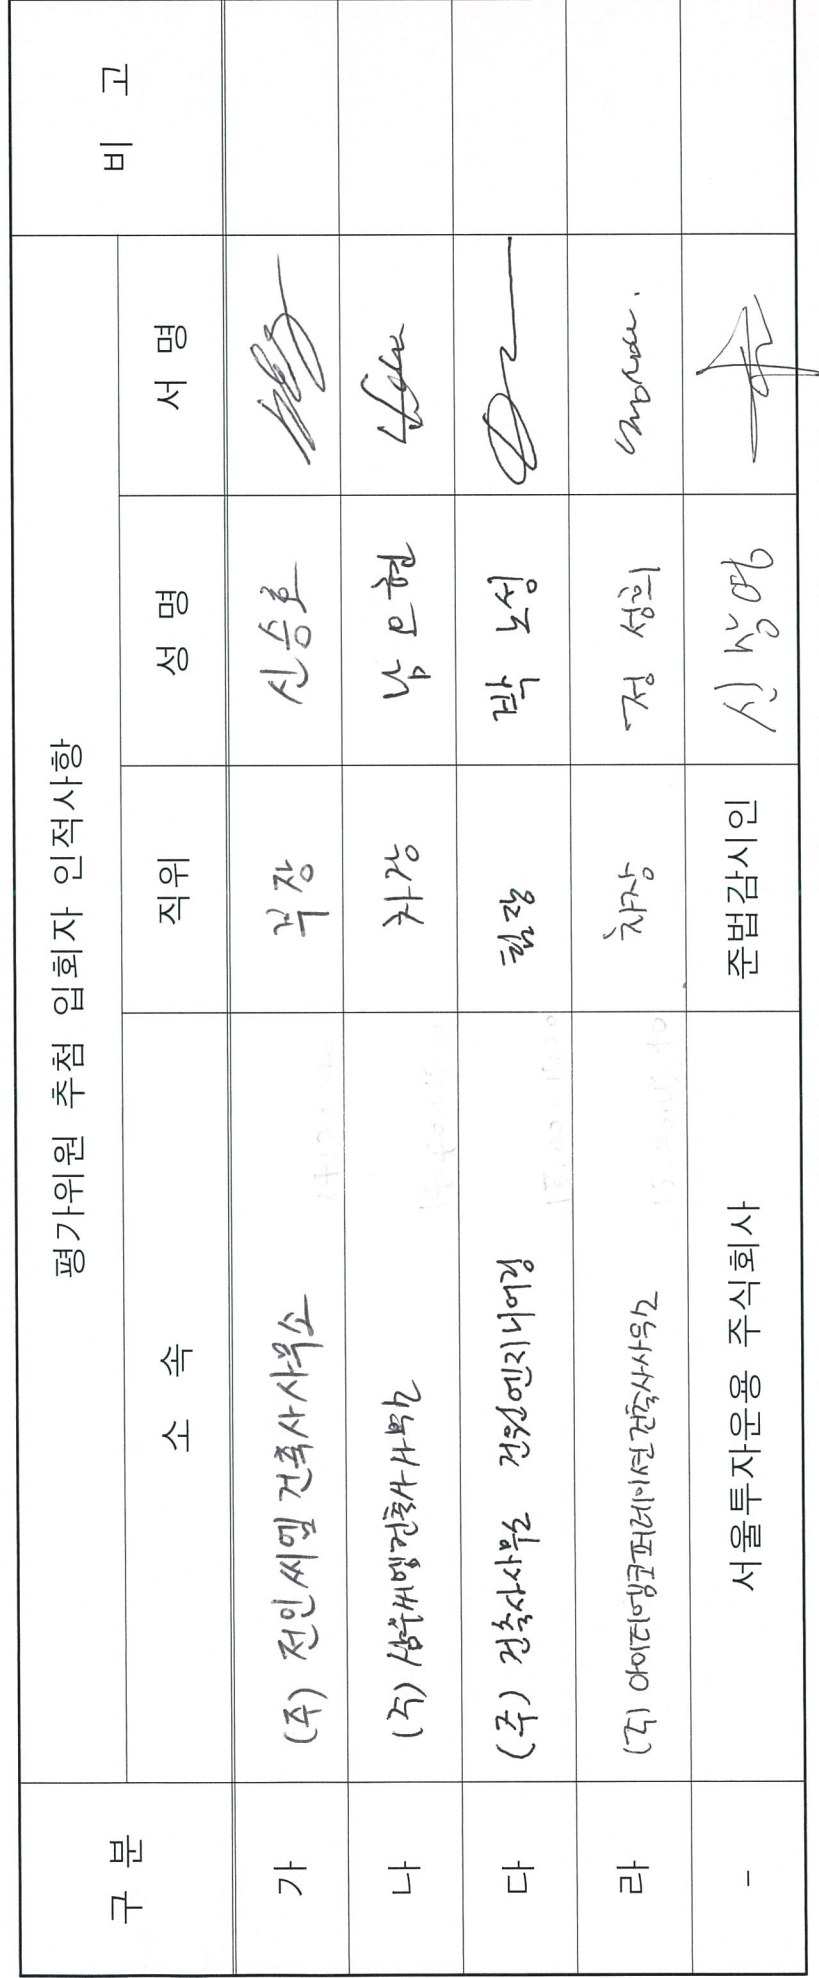 구 분 평가위원 추첨 입회자 인적사항 비 고
소 속 직위 성 명 서 명
가 (주) 전인씨엠 건축사사무소 부장 신승호
나 (주) 삼우씨엠건축사사무소 차장 남 현
다 (주) 건축사사무소 건원엔지니어링 팀장 박 노성
라 (주) 아이티엠코퍼레이션건축사사무소 차장 정 성희
- 서울투자운용 주식회사 준법감시인 신